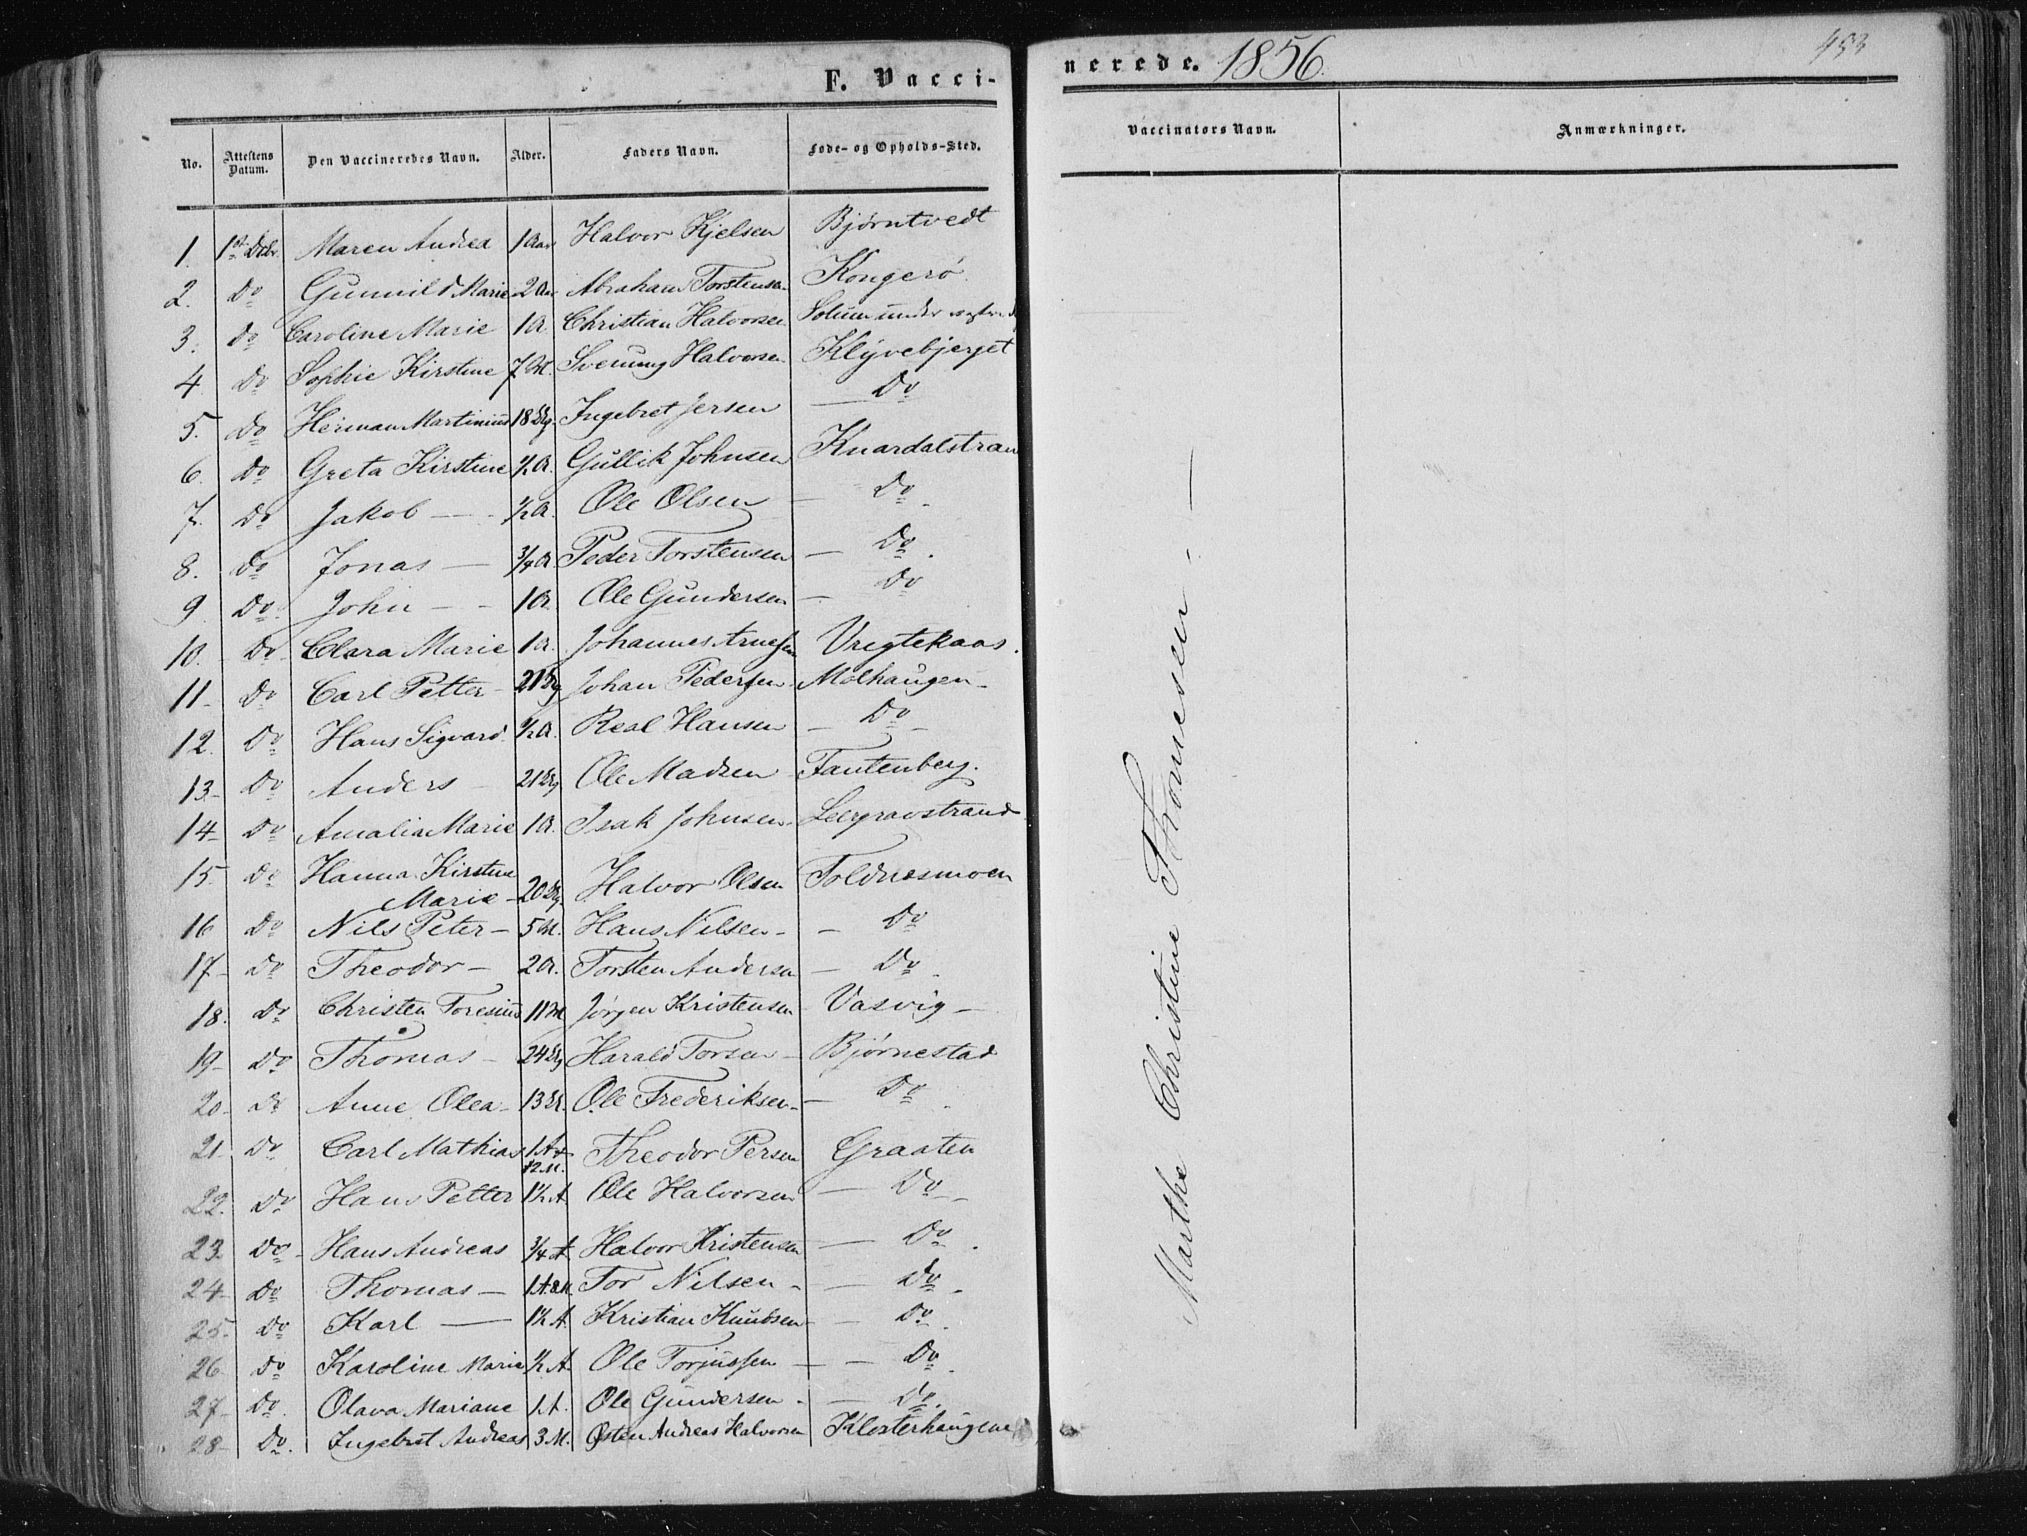 F. Vacci-
nerede. 1856.
453
No. Attestens Datum. Den Vaccineredes Navn. Alder. Faders Navn. Føde- og Opholds-Sted. Vaccinators Navn. Anmærkninger.
1. 1st Decbr. Maren Andrea 1 Aar Halvor Kjelsen Bjørntvedt
2. Do Gunnild Marie 2 Aar Abraham Torstensen Kongerø
3. Do Caroline Marie 1 A. Christian Halvorsen Solum under
4. Do Sophie Kirstine 7 M. Sveinung Halvorsen Klyvebjerget
5. Do Herman Martinius 18 Ug. Ingebret Jersen Do
6. Do Greta Kirstine 1/2 A. Gullik Johnsen Knardalstran
7. Do Jakob — 1/2 A. Ole Olsen — Do
8. Do Jonas — 3/4 A. Peder Torstensen — Do
9. Do. John — 1 A. Ole Gundersen — Do
10. Do Clara Marie 1 A. Johannes Arnesen Vregtekaas.
11- Do Carl Petter - 21 Ug Johan Pedersen Molhaugen -
12. Do Hans Sigvard. 1/2 A. Real Hansen — Do -
13- Do Anders - 21 Ug Ole Madsen Fantenberg.
14- Do Amalia Marie 1 A. Isak Johnsen - Leergravstrand
15. Do Hanna Kirstine
Marie - 20 Ug. Halvor Olsen Toldnesmoen
16 Do Nils Peter - 5 M. Hans Nilsen - — Do
17- Do Theodor - 2 A. Torsten Andersen — Do
18. Do Christen Toresius 11 M Jørgen Kristensen Vasvig -
19- Do Thomas - 24 Ug Harald Torsen - Bjørnestad
20- Do Anne Olea - 13 U. Ole Frederiksen - — Do
21. Do Carl Mathias 1 A +
12 M. Theodor Persen Graaten
22. Do Hans Petter 1 1/2 A Ole Halvorsen — Do -
23. Do - Hans Andreas 3/4 A. Halvor Kristensen — Do.
24- Do Thomas — 1 A 8 M. Tor Nilsen - — Do.
25. Do Karl — 1 1/2 A. Kristian Knudsen — Do.
26 Do Karoline Marie 1/2 A. Ole Torjussen — Do.
27- Do. Olava Mariane 1 A. Ole Gundersen. — Do.
28- Do. Ingebret Andreas 3 M. Østen Andreas Halvorsen Klosterhaugene
Marthe Christine Thomesen. —